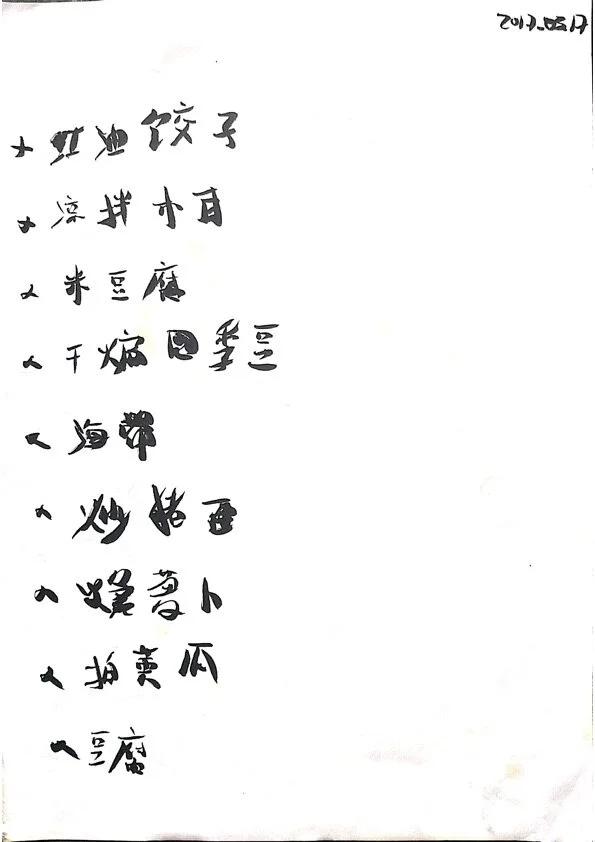 2017.05.17
红油饺子
凉拌木耳
米豆腐
干煸四季豆
海带
炒猪
萝卜
拍黄瓜
豆腐